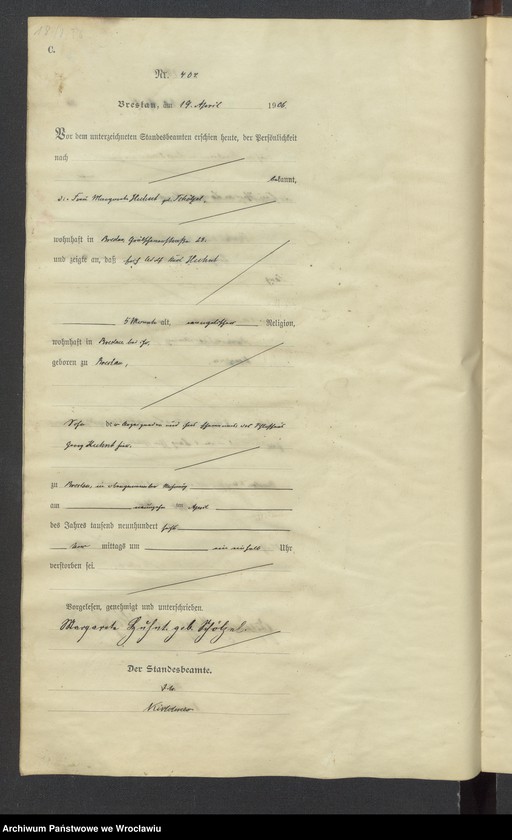 C.
Nr. 408
Breslau, am 19. April 1906
Vor dem unterzeichneten Standesbeamten erschien heute, der Persönlichkeit
nach
bekannt,
die Frau Margarete geb. Schötzel
wohnhaft in Breslau 28.
und zeigte an, daß
5 Monate alt, evangelischer Religion,
wohnhaft in Breslau bei ihr,
geboren zu Breslau,
Sohn der Anzeigenden und ihres Ehemannes, des Schlossers
Georg hier.
zu Breslau, in Wohnung
am neunzehnten April
des Jahres tausend neunhundert sechs
Vor mittags um ein einhalb Uhr
verstorben sei.
Vorgelesen, genehmigt und unterschrieben.
Margarete geb. Schötzel.
Der Standesbeamte.
Archiwum Państwowe we Wrocławiu